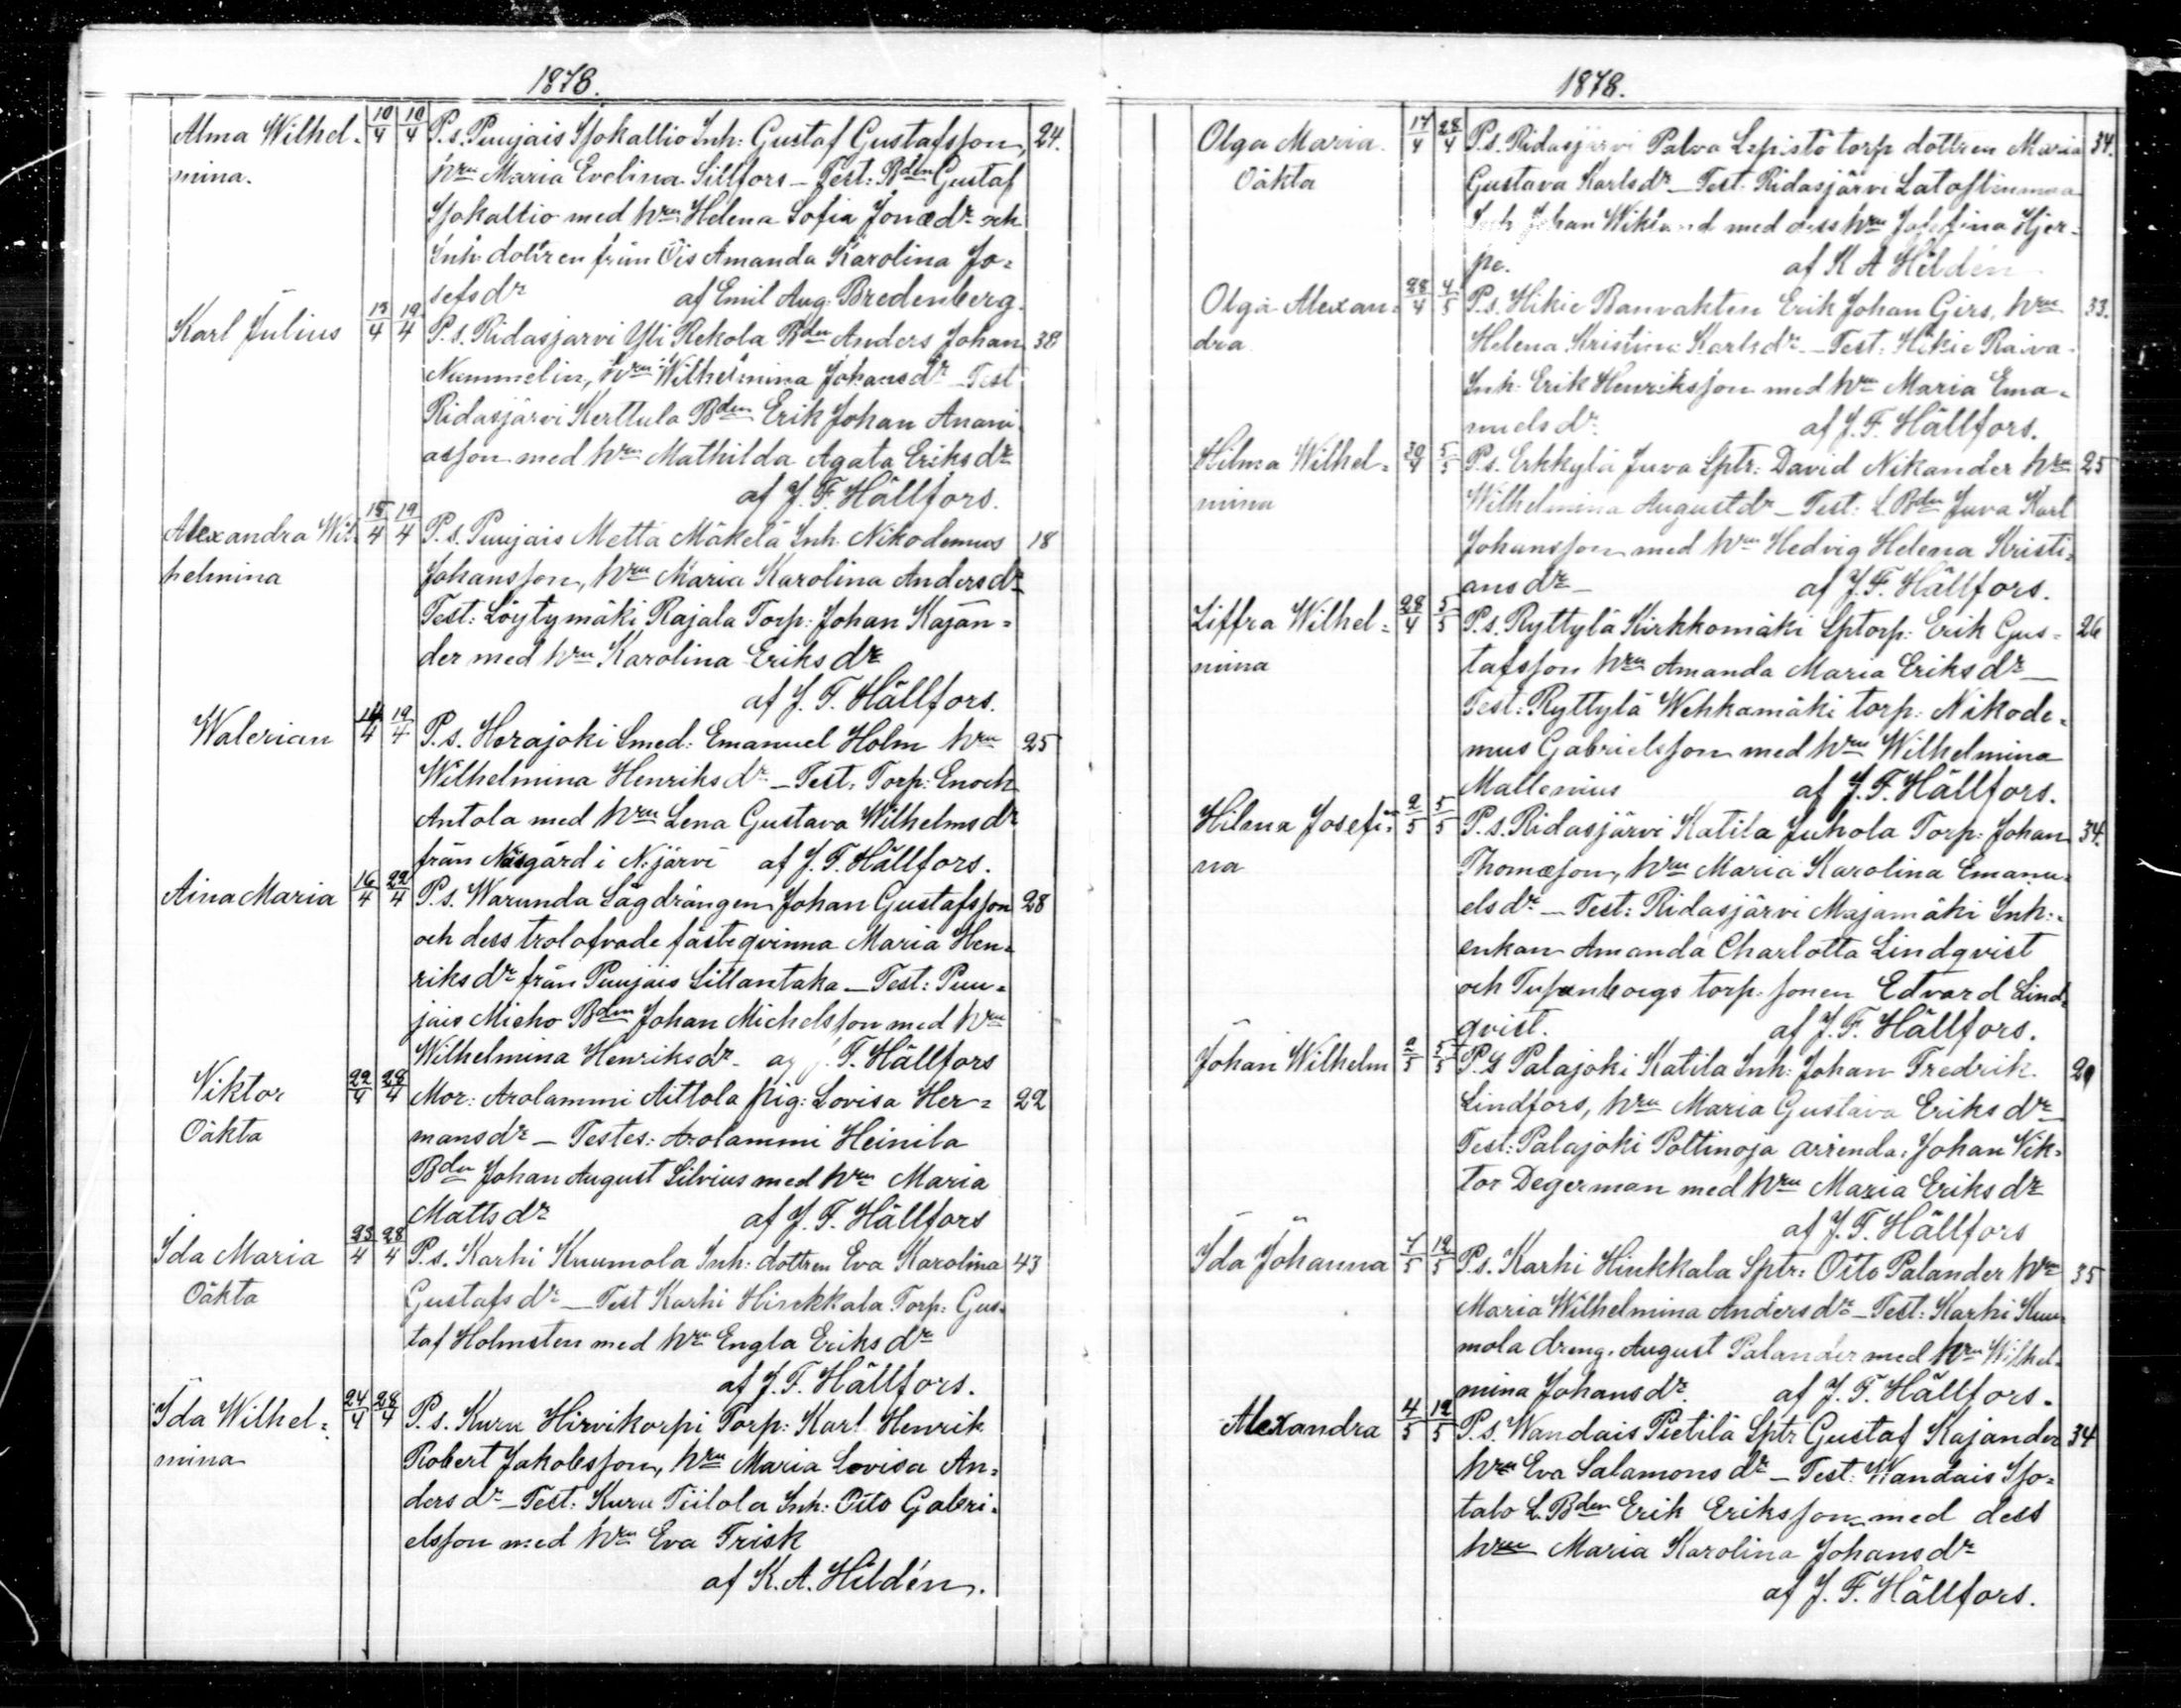 1878.
Alma Wilhel- 10/4 10/4 P.s. Puujais Isokallio Inh: Gustaf Gustafsson, 24.
mina. hru Maria Evelina Sillfors – Test: Bden Gustaf
Isokallio med hru Helena Sofia Jonædr och
Inh. dottren från Ois Amanda Karolina Jo=
sefsdr af Emil Aug. Bredenberg.
Karl Julius 13/4 19/4 P.s. Ridasjarvi Yli Rekola Bden Anders Johan 38
Nummelin, hru Wilhelmina Johansdr – Test
Ridasjärvi Kerttula Bden Erik Johan Anani-
asson med hru Mathilda Agata Eriksdr
af J. F. Hällfors.
Alexandra Wil- 15/4 19/4 P.s. Puujais Metta Mäkelä Inh. Nikodemus 18
helmina Johansson, hru Maria Karolina Andersdr
Test: Löytymäki Rajala Torp: Johan Kajan=
der med hru Karolina Eriksdr
af J. F. Hällfors.
Walerian 14/4 19/4 P.s. Herajoki Smed: Emanuel Holm hru 25
Wilhelmina Henriksdr – Test: Torp: Enoch
Antola med hru Lena Gustava Wilhelmsdr
från Näsgård i N:järvi af J. F. Hällfors.
Aina Maria 16/4 22/4 P.s. Warunda Sågdrängen Johan Gustafsson 28
och dess trolofvade fästeqvinna Maria Hen-
riksdr från Puujais Sillantaka – Test: Puu=
jais Micho Bden Johan Michelsson med hru
Wilhelmina Henriksdr. af J. F. Hällfors
Viktor 22/4 28/4 Mor: Arolammi Aittola pig: Lovisa Her= 22
Oäkta mansdr – Testes: Arolammi Heinila
Bden Johan August Silvius med hru Maria
Mattsdr af J. F. Hällfors
Ida Maria 23/4 28/4 P.s. Karhi Kuumola Inh: dottren Eva Karolina 43
Oäkta Gustafsdr – Test Karhi Hinkkala Torp: Gus=
taf Holmsten med hru Engla Eriksdr
af J. F. Hällfors.
Ida Wilhel= 24/4 28/4 P.s. Kuru Hirvikorpi Torp: Karl Henrik
mina Robert Jakobsson, hru Maria Lovisa An=
dersdr – Test: Kuru Tiilola Inh: Otto Gabri-
elsson med hru Eva Frisk
af K. A. Hildén.
1878.
Olga Maria. 17/4 28/4 P.s. Ridasjärvi Palva Lepistö torp dottren Maria 34.
Oäkta Gustava Karlsdr – Test: Ridasjärvi
Inh Johan Wiklund med dess hru Josefina Hjer-
pe. af K A Hildén
Olga Alexan= 28/4 4/5 P.s. Hikie Banvakten Erik Johan Girs, hru 33.
dra Helena Kristina Karlsdr – Test: Hikie Raiva
Inh. Erik Henriksson med hru Maria Ema-
nuelsdr. af J. F. Hällfors.
Hilma Wilhel= 30/4 5/5 P.s. Erkkylä Juva Sptr: David Nikander hru 25
mina Wilhelmina Augustdr – Test: L. Bden Juva Karl
Johansson med hru Hedvig Helena Kristi-
ansdr – af J. F. Hällfors.
Siffra Wilhel= 28/4 5/5 P.s. Ryttylä Kirkkomäki Sptorp: Erik Gus= 26
mina tafsson hru Amanda Maria Eriksdr –
Test: Ryttylä Wehkamäki torp: Nikode-
mus Gabrielsson med hru Wilhelmina
Mallenius af J. F. Hällfors.
Hilma Josefi= 2/5 5/5 P.s. Ridasjärvi Katila Juhola Torp: Johan 34.
na Thomæson, hru Maria Karolina Emanu-
elsdr – Test: Ridasjärvi Majamäki Inh:
enkan Amanda Charlotta Lindqvist
och torp: sonen Edvard Lind-
qvist. af J. F. Hällfors.
Johan Wilhelm 2/5 5/5 P.s Palajoki Katila Inh: Johan Fredrik 29
Lindfors, hru Maria Gustava Eriksdr –
Test: Palajoki Poltinoja arrenda: Johan Vik=
tor Degerman med hru Maria Eriksdr
af J. F. Hällfors
Ida Johanna 7/5 12/5 P.s. Karhi Hinkkala Sptr: Otto Palander hru 35
Maria Wilhelmina Andersdr – Test: Karhi Kuu-
mola dreng. August Palander med hru Wilhel-
mina Johansdr. af J. F. Hällfors.
Alexandra 4/5 12/5 P.s. Wandais Pietilä Sptr Gustaf Kajander 34
hru Eva Salamonsdr – Test: Wandais Iso=
talo L. Bden Erik Eriksson med dess
hru Maria Karolina Johansdr
af J. F. Hällfors.